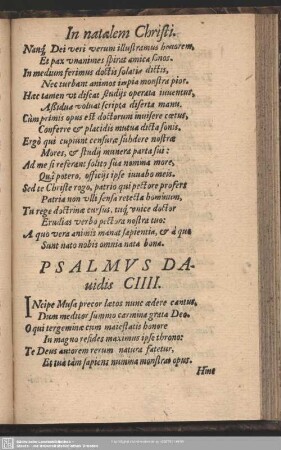 In natalem Christi.
Nanq; Dei veri verum illustramus honorem,
Et pax vnanimes spirat amica sonos.
In medium ferimus doctis solatia dictis,
Nec turbant animos impia monstra pios.
Hæc tamen vt discat studijs operata iuuentus,
Assidua voluat scripta diserta manu.
Cùm primis opus est doctorum inuisere cœtus,
Conferre & placidis mutua dicta sonis.
Ergò qui cupiunt censuræ subdere nostræ
Mores, & studij munera parta sui:
Ad me si referant solito sua nomina more,
Quà potero, officijs ipse iuuabo meis.
Sed te Christe rogo, patrio qui pectore profers
Patria non vlli sensa retecta hominum,
Tu rege doctrinæ cursus, tuq; vnice doctor
Erudias verbo pectora nostra tuo:
A quo vera animis manat sapientia, & à quo
Sunt nato nobis omnia nata bona.
PSALMVS DA-
uidis CIIII.
INcipe Musa precor lætos nunc ædere cantus,
Dum meditor summo carmina grata Deo.
O qui tergeminæ cum maiestatis honore
In magno resides maximus ipse throno:
Te Deus autorem rerum natura fatetur,
Et tua tàm sapiens numina monstrat opus.
Hinc